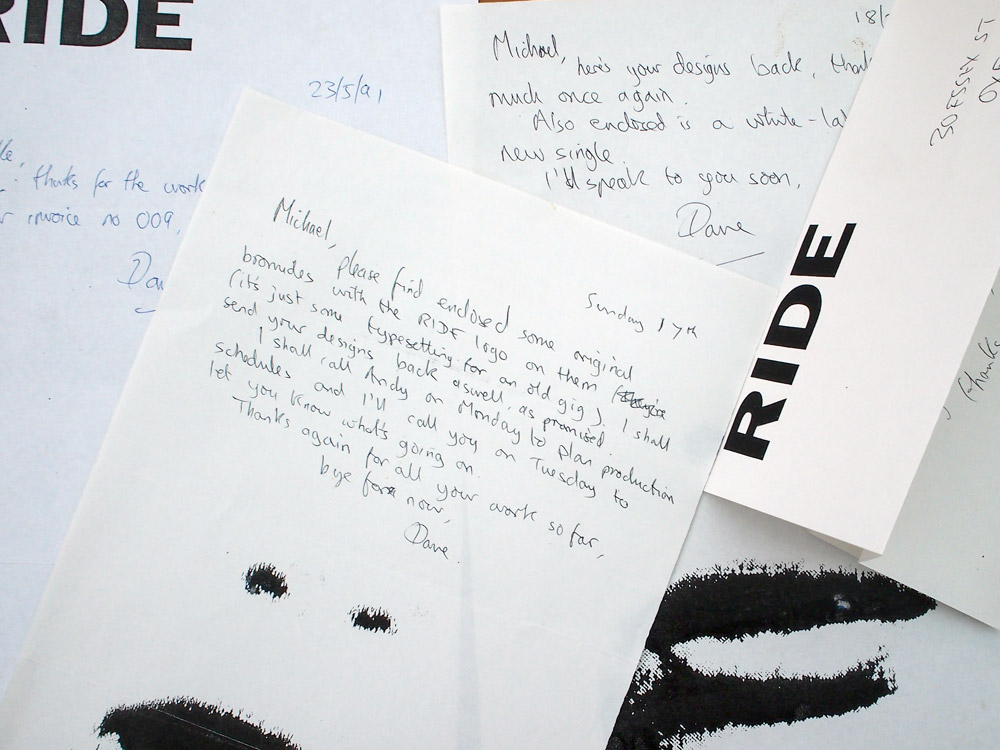 RIDE
23/5/91
thanks for the work
invoice no 009,
18/
Michael,
here's your designs back, thank
much once again.
Also enclosed is a white-la
new single.
I'll speak to you soon,
Dave
30 ESSEX ST
RIDE
thanks
Sunday 17th
Michael,
please find enclosed some original
bromides with the RIDE logo on them
(it's just some typesetting for an old gig). I shall
send your designs back aswell, as promised.
I shall call Andy on Monday to plan production
schedules and I'll call you on Tuesday to
let you know what's going on.
Thanks again for all your work so far,
bye for now,
Dave